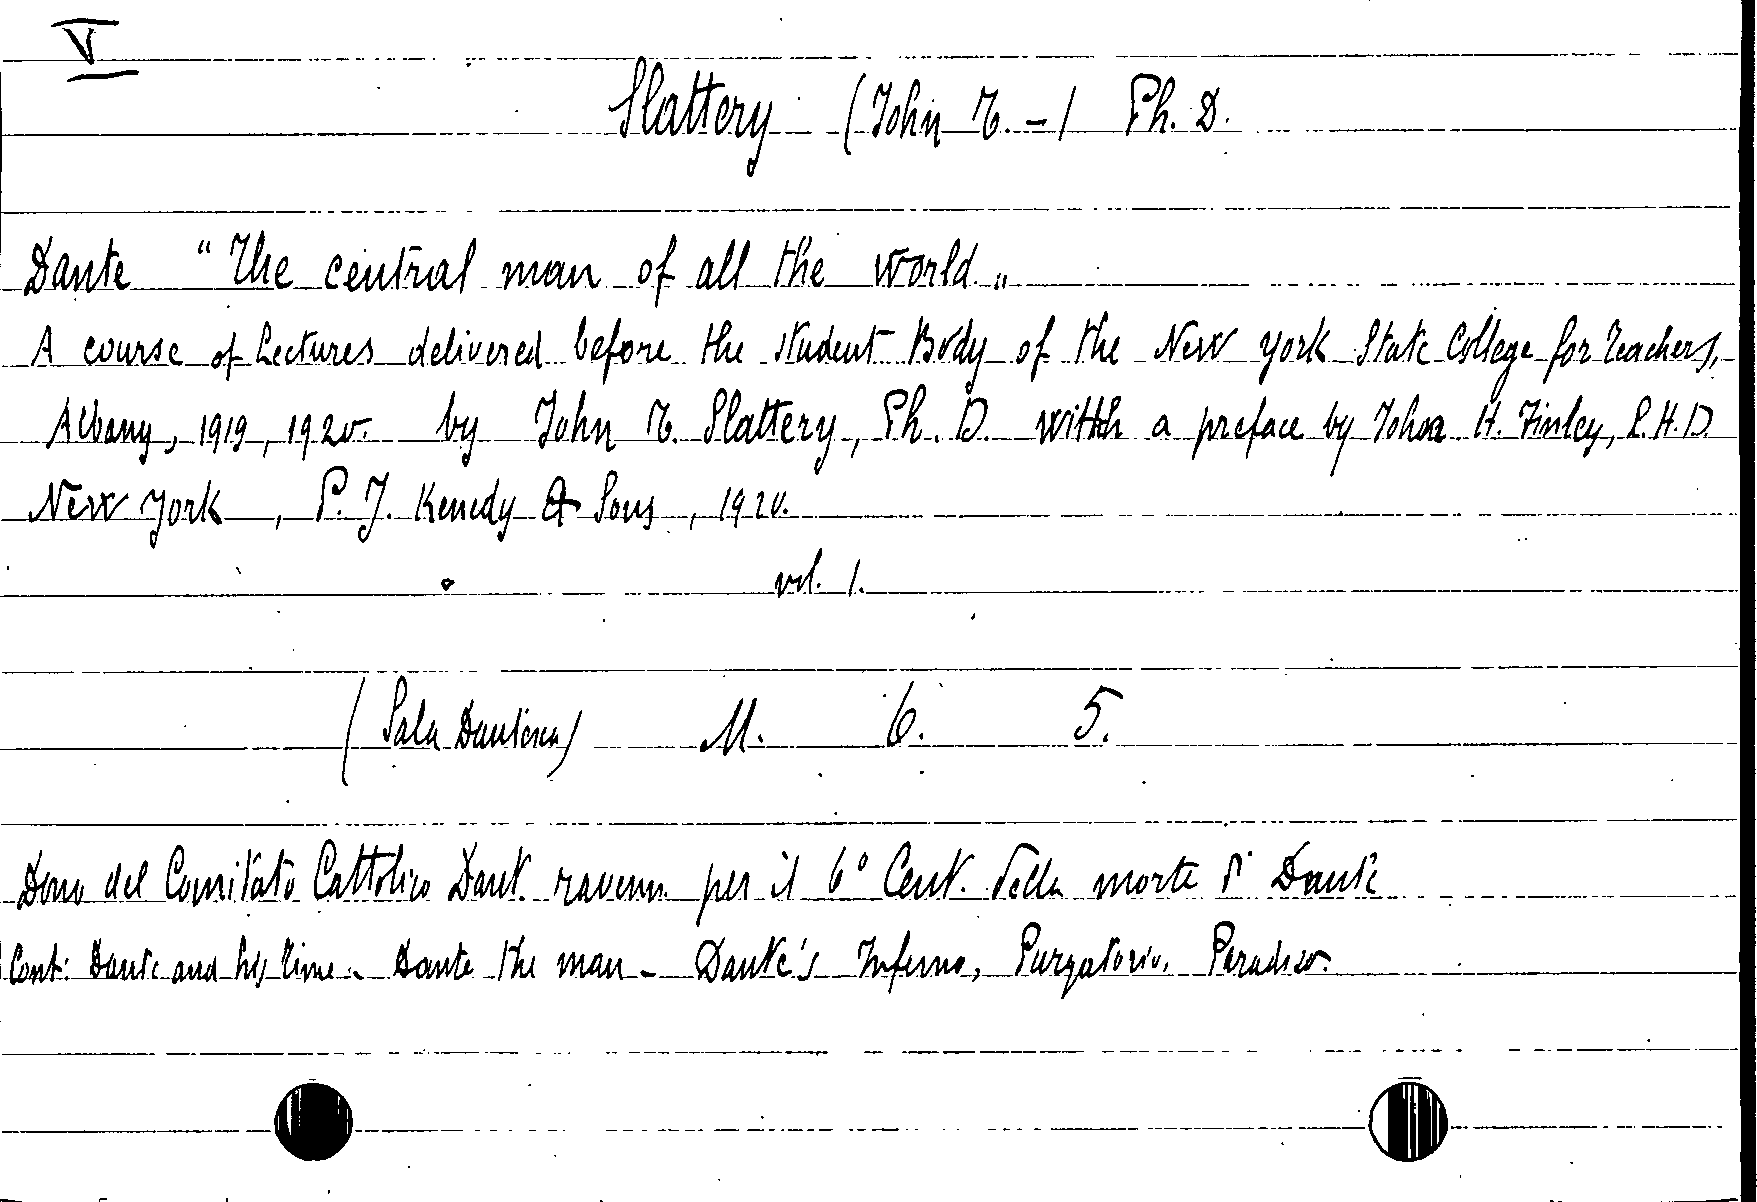 V
Slattery (John T. -) Ph. D.
Dante "The central man of all the world"
A course of Lectures delivered before the student Body of the New york State College for Teachers,
Albany, 1919, 1920. by John T. Slattery, Ph. D. witth a preface by John H. Finley, L.H.D.
New York, P. J. Kenedy & Sons, 1920.
vol. 1.
(Sala Dantesca) M. 6. 5.
Dono del Comitato Cattolico Dant. ravenn. per il 6° Cent. della morte di Dante
Cont: Dante and his time - Dante the man - Dante's Inferno, Purgatorio, Paradiso.